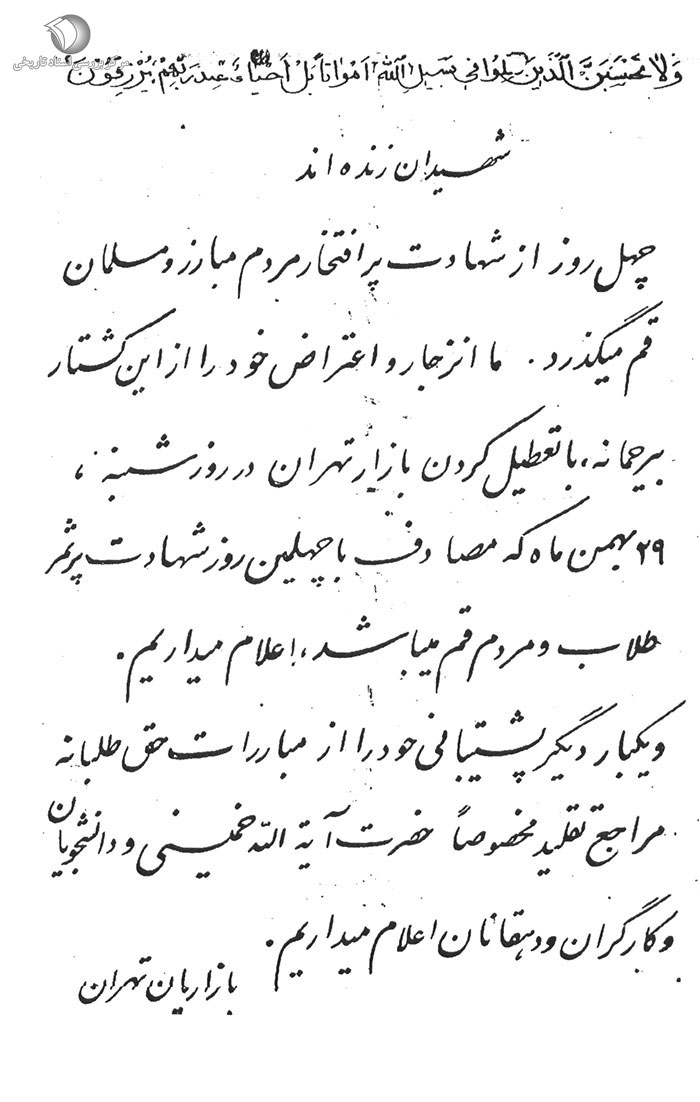 مرکز بررسی اسناد تاریخی
وَلاٰ تَحْسَبَنَّ الَّذینَ قُتِلوُا فی سَبیلِ اللّٰهِ اَمْواتاً بَلْ اَحْیاءٌ عِنْدَ رَبِّهِمْ یُرْزَقُونَ
شهیدان زنده اند
چهل روز از شهادت پر افتخار مردم مبارز و مسلمان
قم میگذرد. ما انزجار و اعتراض خود را از این کشتار
بیرحمانه، با تعطیل کردن بازار تهران در روز شنبه،
۲۹ بهمن ماه که مصادف با چهلمین روز شهادت پرثمر
طلاب و مردم قم میباشد، اعلام میداریم.
و یکبار دیگر پشتیبانی خود را از مبارزات حق طلبانه
مراجع تقلید مخصوصاً حضرت آیة اللّه خمینی و دانشجویان
و کارگران و دهقانان اعلام میداریم.
بازاریان تهران